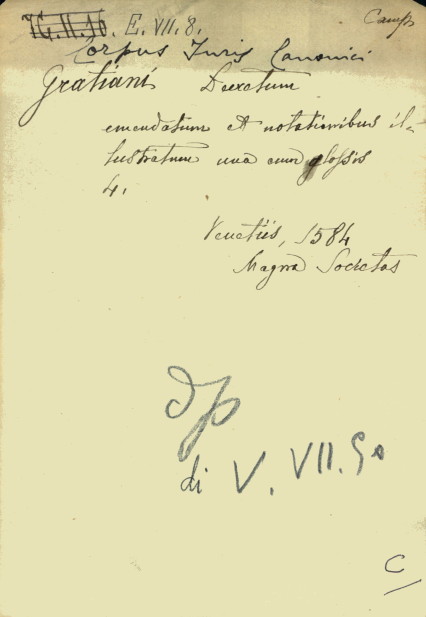 IG.II.10. E. VII. 8. Camp
Corpus Iuris Canonici
Gratiani Decretum
emendatum et notationibus il=
lustratum una cum glossis
4.
Venetiis, 1584
Magna Societas
dp
di V. VII. 90
C